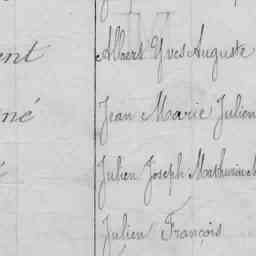 ent Albert Yves Auguste
né Jean Marie Julien
Julien Joseph Mathurin M
Julien François